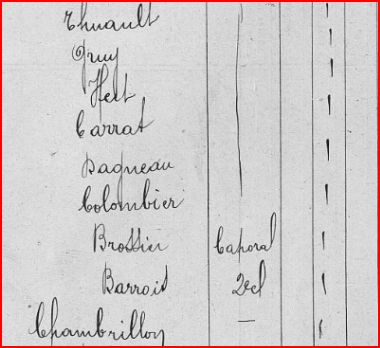 Thuault
Guy
Hert
Carrat
Pagneau
Colombier
Brossier Caporal
Barrois 2e cl
Chambrillon —